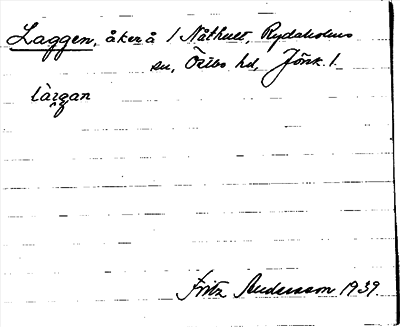 Laggen, åker å / Nåthult, Rydaholms
sn, Östbo hd, Jönk. l.
làggan
Fritz Andersson 1939